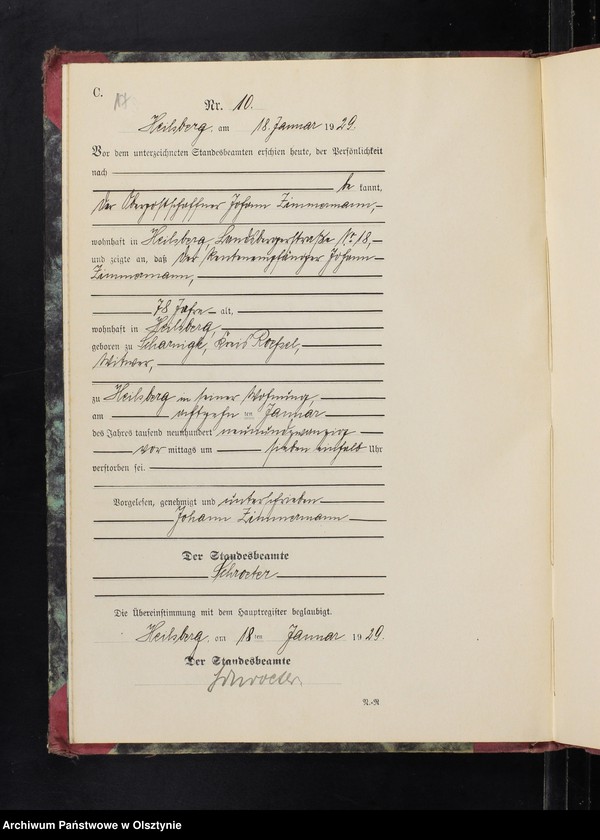 C.
17
Nr. 10.
Heilsberg, am 18. Januar 1929.
Vor dem unterzeichneten Standesbeamten erschien heute, der Persönlichkeit
nach
be kannt,
der Oberpostschaffner Johann Zimmermann,
wohnhaft in Heilsberg, Landsbergerstraße Nr. 18,
und zeigte an, daß der Rentenempfänger Johann
Zimmermann,
78 Jahre alt,
wohnhaft in Heilsberg,
geboren zu Scharnigk, Kreis Roessel,
Witwer,
zu Heilsberg in seiner Wohnung,
am achtzehn ten Januar
des Jahres tausend neunhundert neunundzwanzig
vor mittags um sieben einhalb Uhr
verstorben sei.
Vorgelesen, genehmigt und unterschrieben
Johann Zimmermann
Der Standesbeamte
Schroeter
Die Übereinstimmung mit dem Hauptregister beglaubigt.
Heilsberg, am 18 ten Januar 1929.
Der Standesbeamte
Schroeter
N.-R
Archiwum Państwowe w Olsztynie